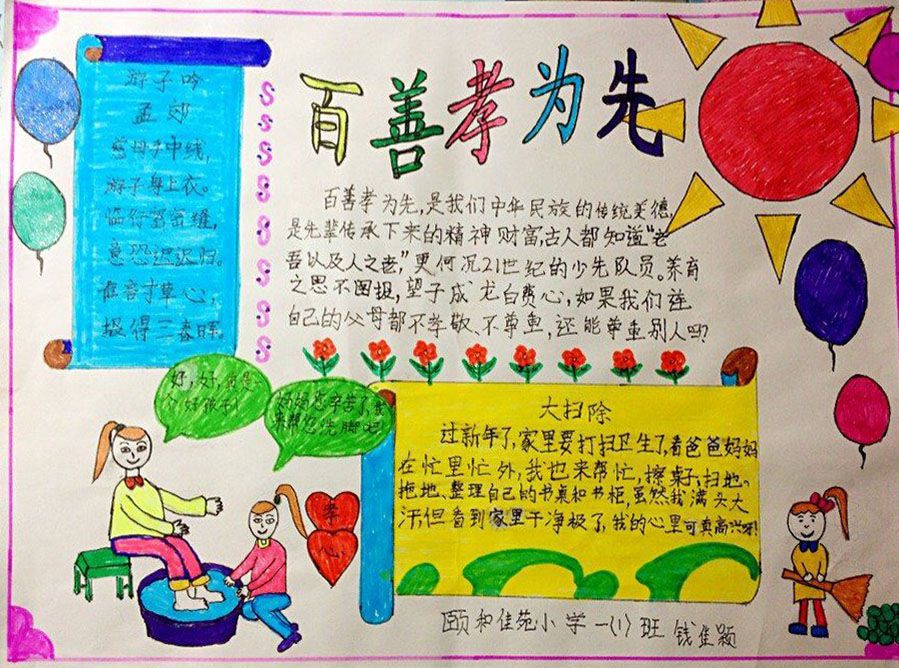 百善孝为先
游子吟
孟郊
慈母手中线,
游子身上衣。
临行密密缝,
意恐迟迟归。
谁言寸草心,
报得三春晖。
百善孝为先,是我们中华民族的传统美德,
是先辈传承下来的精神财富,古人都知道“老
吾以及人之老,”更何况21世纪的少先队员。养育
之恩不图报,望子成龙白费心,如果我们连
自己的父母都不孝敬、不尊重,还能尊重别人吗?
好,好,我是一
个好孩子!
妈妈您辛苦了,我
来帮您洗脚吧!
孝
心
大扫除
过新年了,家里要打扫卫生了,看爸爸妈妈
在忙里忙外,我也来帮忙,擦桌子,扫地。
拖地、整理自己的书桌和书柜虽然我满头大
汗,但看到家里干净极了,我的心里可真高兴呀!
颐和佳苑小学一(1)班 钱佳颖